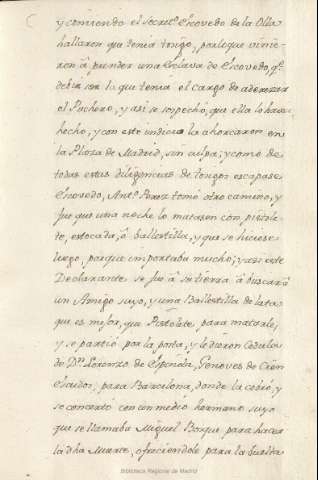 y comiendo el Secret.º Escovedo de la Olla
hallaron que tenia tosigo, por lo que vinie-
ron á prender una Esclava de Escovedo, q.e
debia ser la que tenia el cargo de aderezar
el Puchero, y asi se sospechó, que ella lo havia
hecho, y con este indicio la ahorcaron en
la Plaza de Madrid, sin culpa; y como de
todas estas diligencias de tosigos escapase
Escovedo, Ant.º Perez tomó otro camino, y
fue que una noche lo matasen con pistole-
te, estocada, ó ballestilla, y que se hiciese
luego, porque importaba mucho; y asi este
Declarante se fue á su tierra á buscar á
un Amigo suyo, y una Ballestilla de
que es mejor, que Pistolete para matarle,
y se partió por la posta, y le dieron Cedulas
de D.n Lorenzo de Espinola, Genoves de Cien
Escudos, para Barcelona, donde la cobró, y
se concertó con un medio hermano suyo
que se llamaba Miguel Bosque para hacer
la dha Muerte, ofreciendole para la buelta
Biblioteca Regional de Madrid